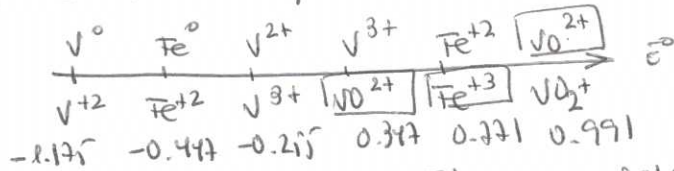 V⁰ Fe⁰ V²⁺ V³⁺ Fe⁺² VO²⁺
E⁰
V⁺² Fe⁺² V³⁺ VO²⁺ Fe⁺³ VO₂⁺
-1.175 -0.447 -0.255 0.347 0.771 0.991